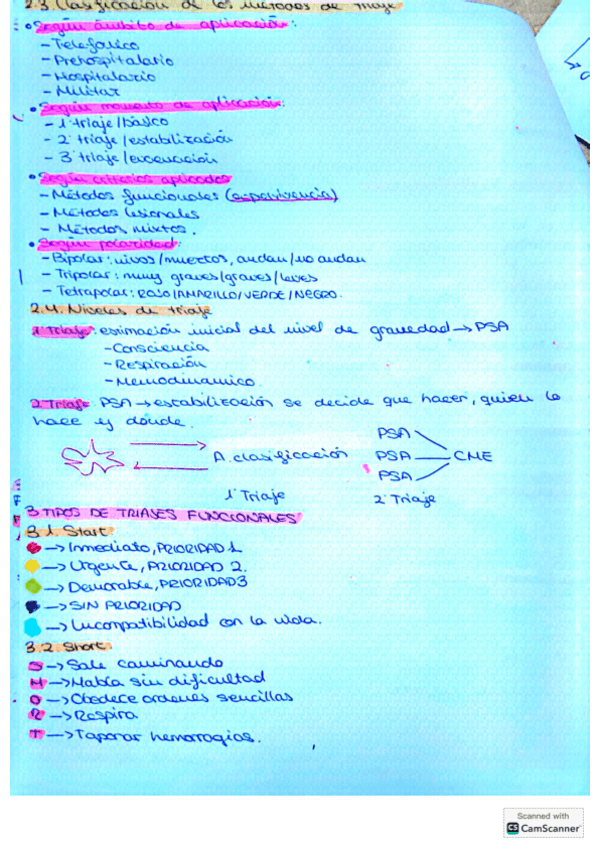 2.3 Clasificación de los métodos de triaje
• Según ámbito de aplicación:
- Telefónico
- Prehospitalario
- Hospitalario
- Militar
• Según momento de aplicación:
- 1º triaje/básico
- 2º triaje/estabilización
- 3º triaje/evacuación
• Según criterios aplicados
- Métodos funcionales (supervivencia)
- Métodos lesionales
- Métodos mixtos.
• Según polaridad:
- Bipolar: vivos/muertos, andan/no andan
- Tripolar: muy graves/graves/leves
- Tetrapolar: ROJO/AMARILLO/VERDE/NEGRO.
2.4. Niveles de triaje
1 Triaje: estimación inicial del nivel de gravedad → PSA
- Consciencia
- Respiración
- Hemodinámico.
2 Triaje: PSA → estabilización se decide que hacer, quien lo
hace y dónde.
A. clasificación
PSA
PSA
PSA
CME
1º Triaje
2º Triaje
3 TIPOS DE TRIAJES FUNCIONALES
3.1. Start
→ Inmediato, PRIORIDAD 1
→ Urgente, PRIORIDAD 2.
→ Demorable, PRIORIDAD 3
→ SIN PRIORIDAD
→ Incompatibilidad con la vida.
3.2. Short
S → Sale caminando
H → Habla sin dificultad
O → Obedece ordenes sencillas
R → Respira
T → Taponar hemorragias.
Scanned with
CS CamScanner